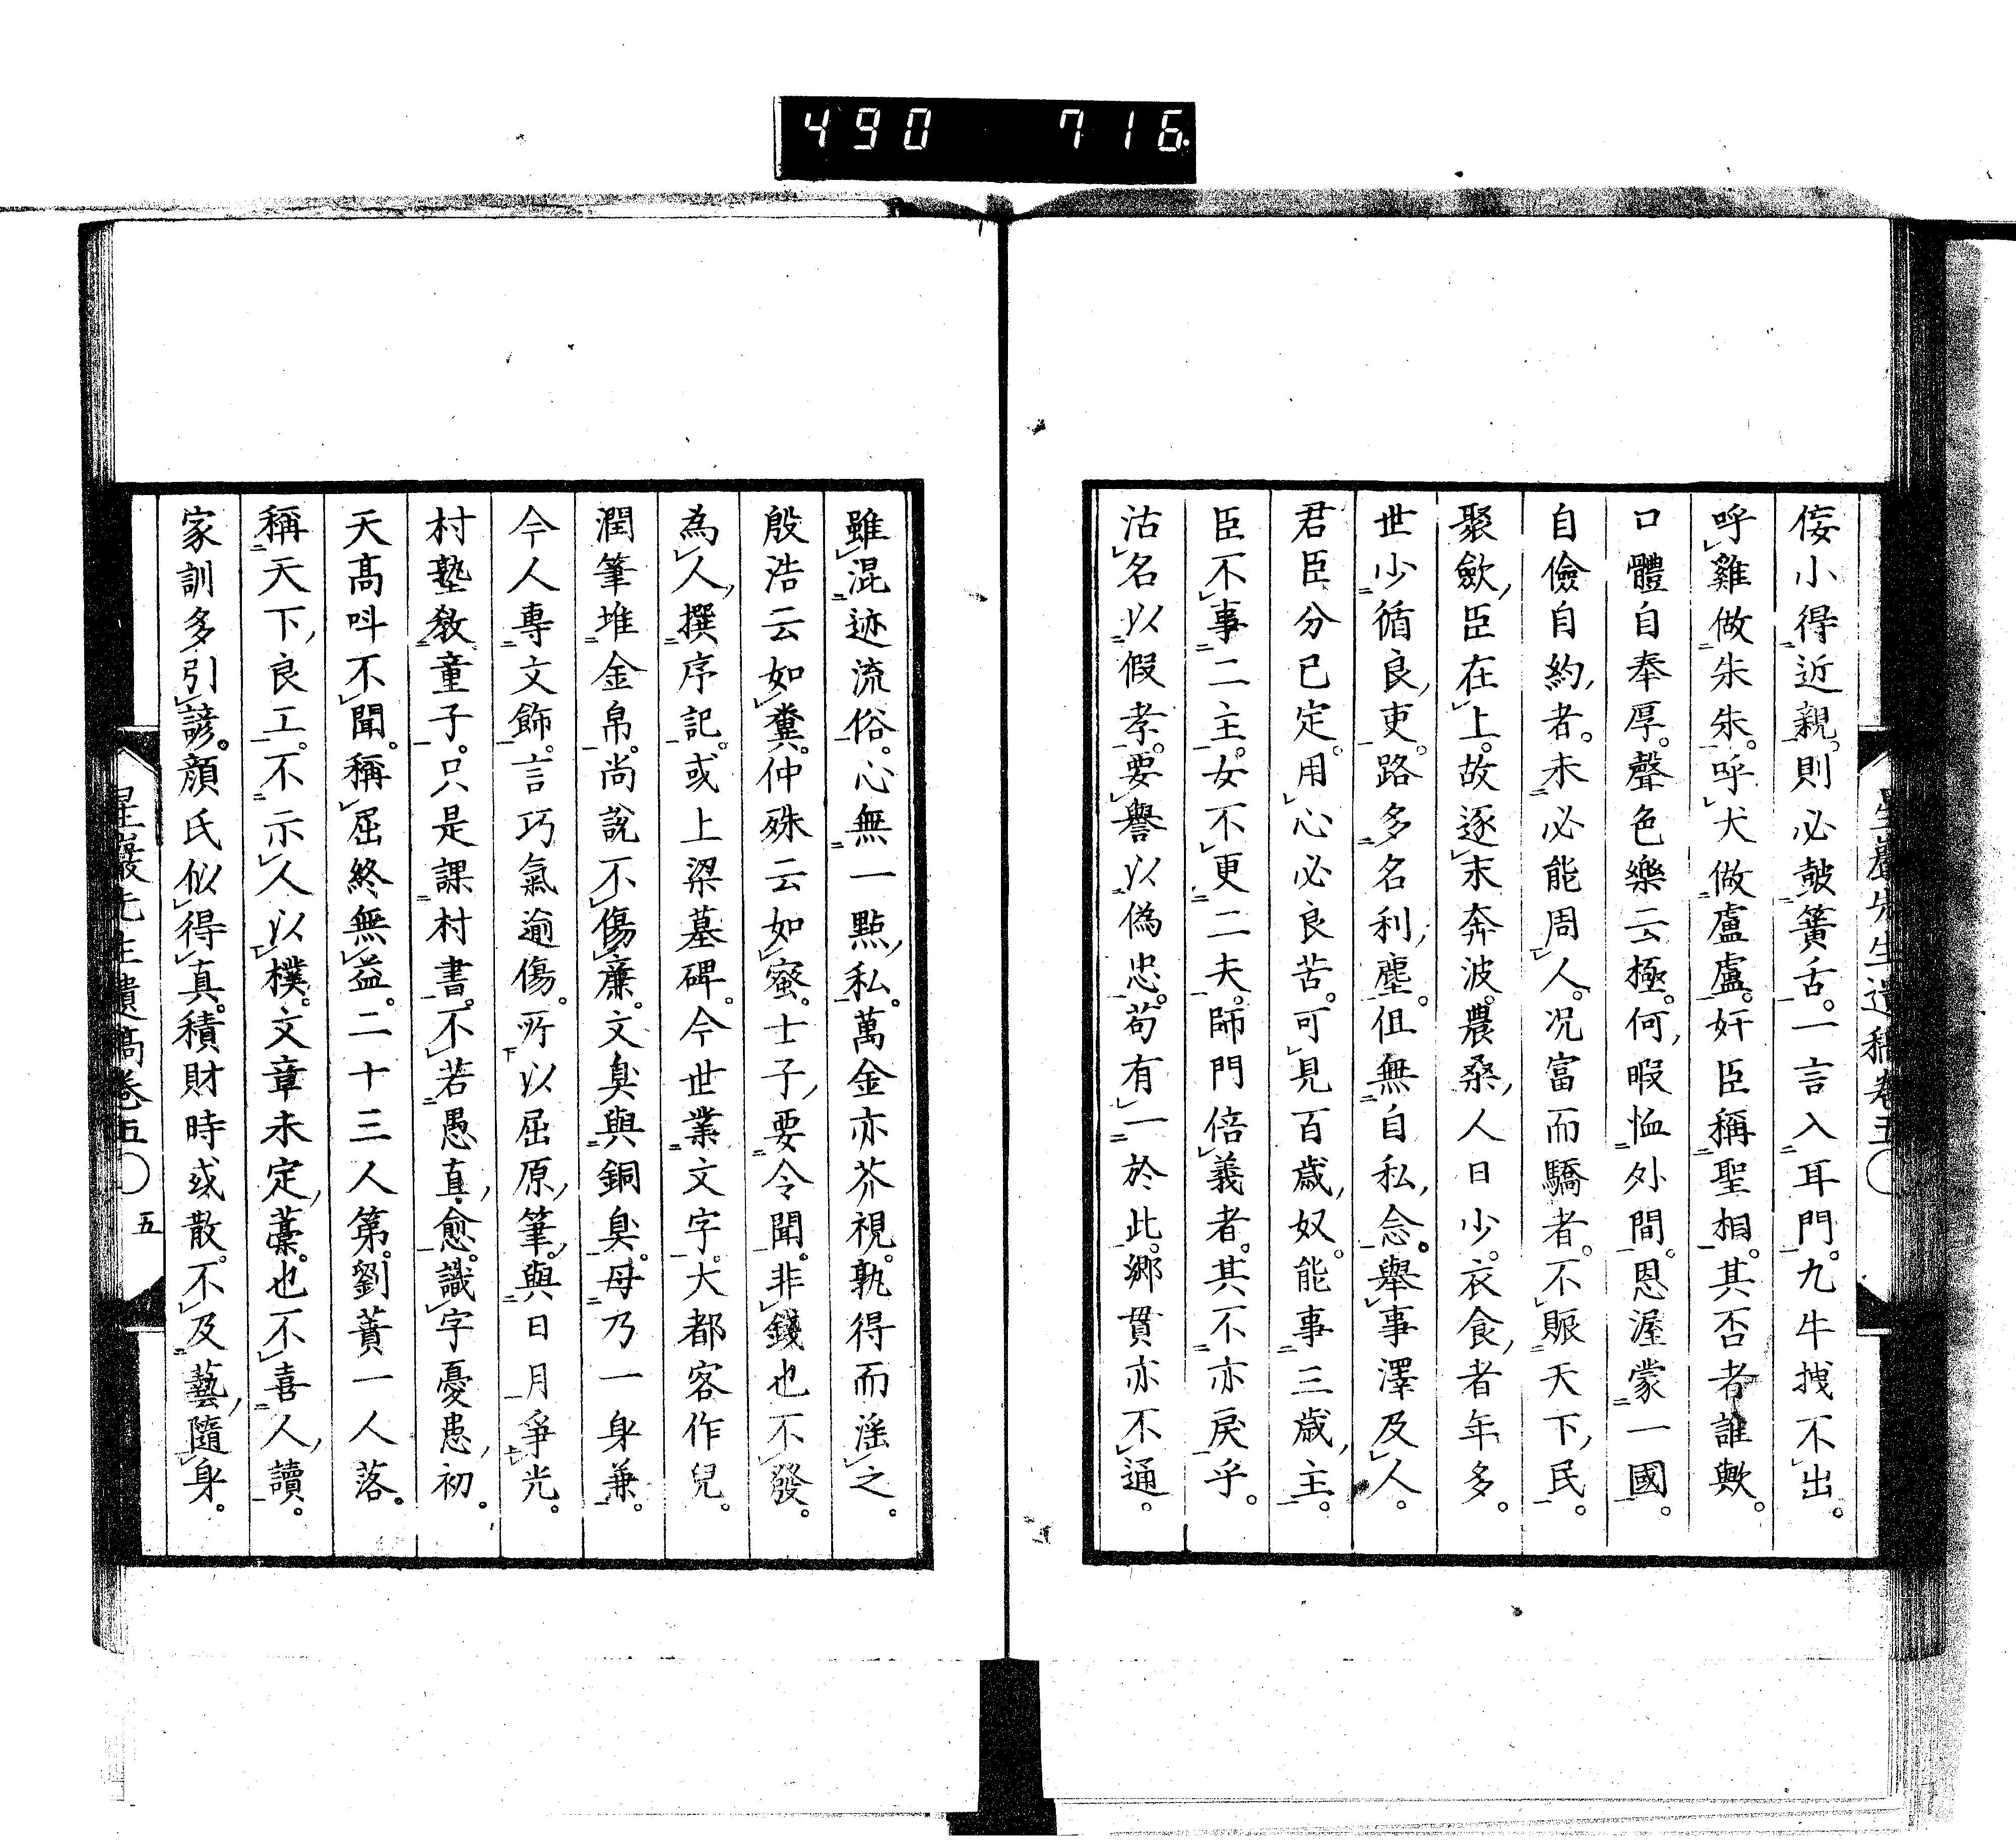 490 716
侫小得近親。則必皷簧舌。一言入耳門。九牛拽不出。
呼雞做朱朱。呼犬做盧盧。奸臣稱聖相。其否者誰歟。
口體自奉厚。聲色樂云極。何暇恤外間。恩渥蒙一國。
自儉自約者。未必能周人。况富而驕者。不賑天下民。
聚斂臣在上。故逐末奔波。農桑人日少。衣食者年多。
世少循良吏。路多名利塵。但無自私念。舉事澤及人。
君臣分已定。用心必良苦。可見百歳奴。能事三歳主。
臣不事二主。女不更二夫。師門倍義者。其不亦戾乎。
沽名以假孝。要譽以偽忠。苟有一於此。鄉貫亦不通。
雖混迹流俗。心無一點私。萬金亦芥視。孰得而滛之。
殷浩云如糞。仲殊云如蜜。士子要令聞。非錢也不發。
為人撰序記。或上梁墓碑。今世業文字。大都客作兒。
潤筆堆金帛。尚說不傷廉。文臭與銅臭。毋乃一身兼。
今人專文飾。言巧氣逾傷。所以屈原筆。與日月爭光。
村塾教童子。只是課村書。不若愚直愈。識字憂患初。
天高呌不聞。稱屈終無益。二十三人第。劉蕡一人落。
稱天下良工。不示人以樸。文章未定藁。也不喜人讀。
家訓多引諺。顔氏似得真。積財時或散。不及藝隨身。
星巖先生遺稿卷五〇 五